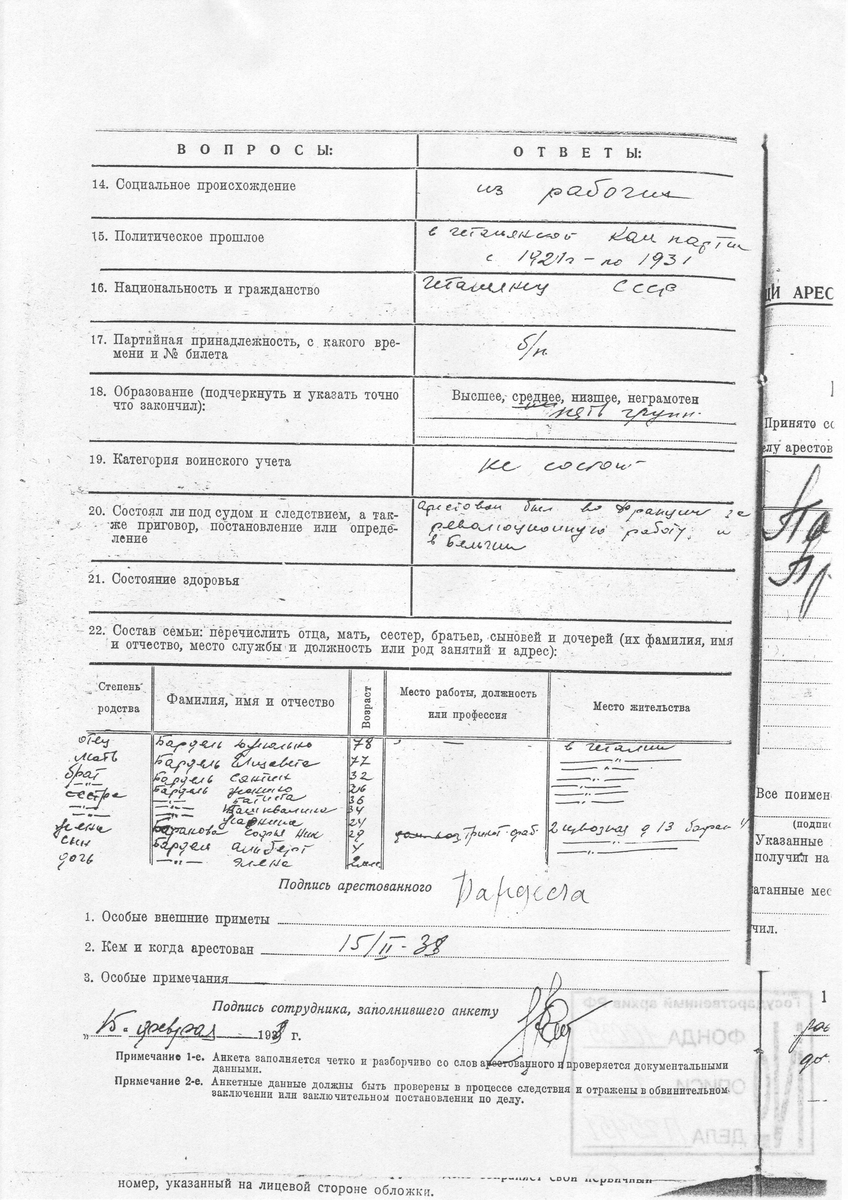 ВОПРОСЫ: ОТВЕТЫ:
14. Социальное происхождение из рабочих
15. Политическое прошлое в итальянской Ком партии
с 1921 г – по 1931
16. Национальность и гражданство итальянец СССР
17. Партийная принадлежность, с какого вре-
мени и № билета б/п.
18. Образование (подчеркнуть и указать точно Высшее, среднее, низшее, неграмотен
что закончил): пять групп.
19. Категория воинского учета не состоит
20. Состоял ли под судом и следствием, а так- арестован был во Франции за
же приговор, постановление или опреде- революционную работу, и
ление в Бельгии
21. Состояние здоровья
22. Состав семьи: перечислить отца, мать, сестер, братьев, сыновей и дочерей (их фамилия, имя
и отчество, место службы и должность или род занятий и адрес):
Степень родства Фамилия, имя и отчество Возраст Место работы, должность или профессия Место жительства
отец Бардель 78 в Италии
мать Бардель Елизавета 77 –"–
брат Бардель Сантин 32 –"–
–"– Бардель 26 –"–
сестра –"– 36 –"–
–"– –"– 34 –"–
–"– –"– 24
жена Баранова Софья Ник 29 Трикот. фаб 2 Извозная д 13
сын Бардель Альберт 4 –"–
дочь –"– Элена 2 мес
Подпись арестованного Бардела
1. Особые внешние приметы
2. Кем и когда арестован 15/II-38
3. Особые примечания
Подпись сотрудника, заполнившего анкету
„15. февраля 1938 г.
Примечание 1-е. Анкета заполняется четко и разборчиво со слов арестованного и проверяется документальными
данными.
Примечание 2-е. Анкетные данные должны быть проверены в процессе следствия и отражены в обвинительном
заключении или заключительном постановлении по делу.
номер, указанный на лицевой стороне обложки.
ЩИ АРЕС
Принято со
елу арестов
Пр
Все поимен
(подпис
Указанные
получил на
атанные мес
чил.
1
Государственный архив РФ
ФОНДА
ОПИСИ
№ ДЕЛА